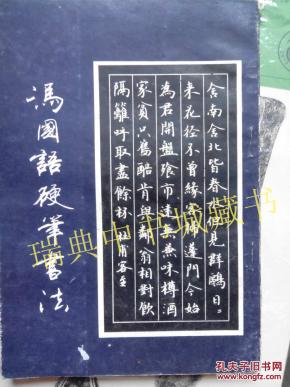 馮國語硬筆書法
舍南舍北皆春水但見群鷗日〻
来花徑不曾緣客掃蓬門今始
為君開盤飱市遠無兼味樽酒
家貧只舊醅肯與鄰翁相對飲
隔籬呼取盡餘杯 杜甫客至
孔夫子旧书网